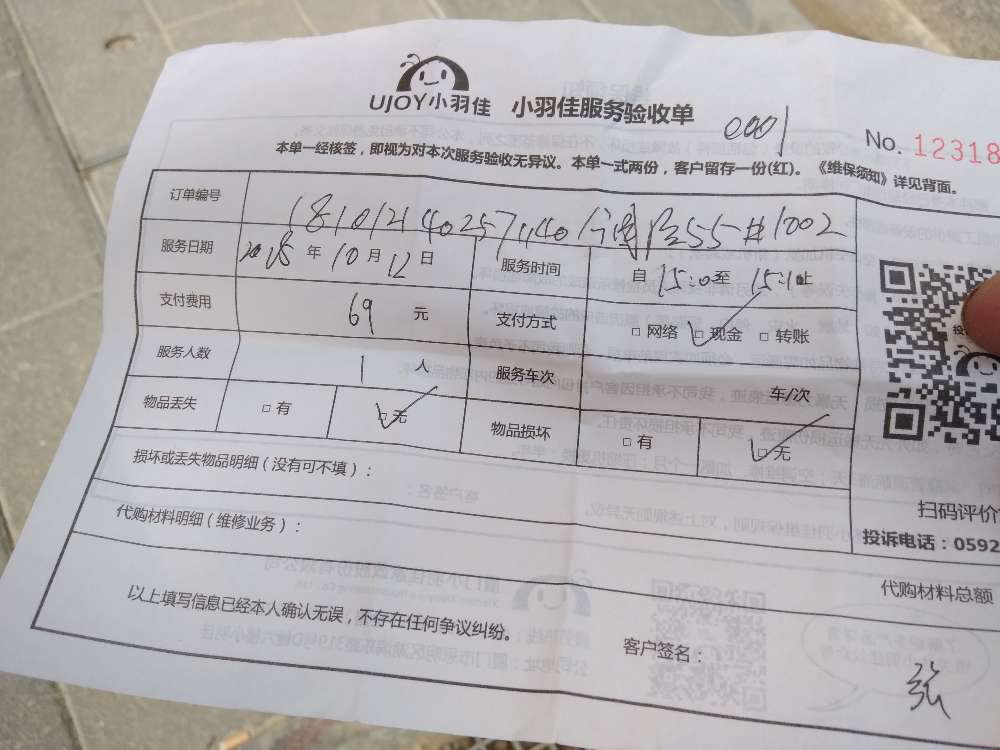 UJOY小羽佳 小羽佳服务验收单
0001
No. 12318
本单一经核签，即视为对本次服务验收无异议。本单一式两份，客户留存一份(红)。《维保须知》详见背面。
订单编号
服务日期 2018 年 10 月 12 日 服务时间 自 15:0 至 15:10 止
支付费用 69 元 支付方式 □ 网络 □ 现金 □ 转账
服务人数 1 人 服务车次 车/次
物品丢失 □ 有 □ 无 物品损坏 □ 有 □ 无
损坏或丢失物品明细（没有可不填）：
扫码评价
代购材料明细（维修业务）：
投诉电话：0592
代购材料总额
以上填写信息已经本人确认无误，不存在任何争议纠纷。
客户签名： 张